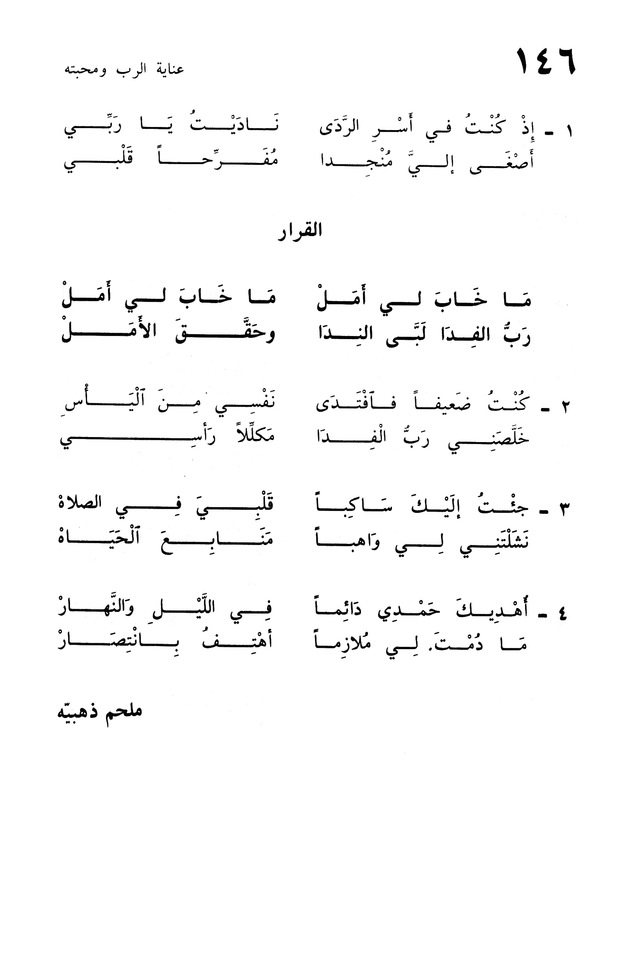 ١٤٦
عناية الرب ومحبته
١ - إِذْ كُنْتُ في أَسْرِ الرَّدَى نَادَيْتُ يَا رَبِّي
أَصْغَى إليَّ مُنْجِدا مُفَرِّحاً قَلْبي
القرار
مَا خَابَ لي أَمَلْ مَا خَابَ لي أَمَلْ
رَبُّ الفِدَا لَبَّى النِدَا وحَقَّقَ الأَمَلْ
٢ - كُنْتُ ضَعيفاً فَٱفْتَدَى نَفْسِي مِنَ ٱلْيَأْسِ
خَلَّصَنِي رَبُّ الْفِدَا مَكلِّلاً رَأسِي
٣ - جئْتُ إلَيْكَ سَاكِباً قَلْبِيَ فِي الصلاهْ
نَشَلْتَنِي لِي وَاهباً مَنَابِعَ ٱلْحَيَاهْ
٤ - أُهْدِيكَ حَمْدِي دَائِماً فِي اللَّيْلِ وَالنَّهارْ
مَا دُمْتَ. لِي مُلازِماً أهْتِفُ بِانْتِصَارْ
ملحم ذهبيّه